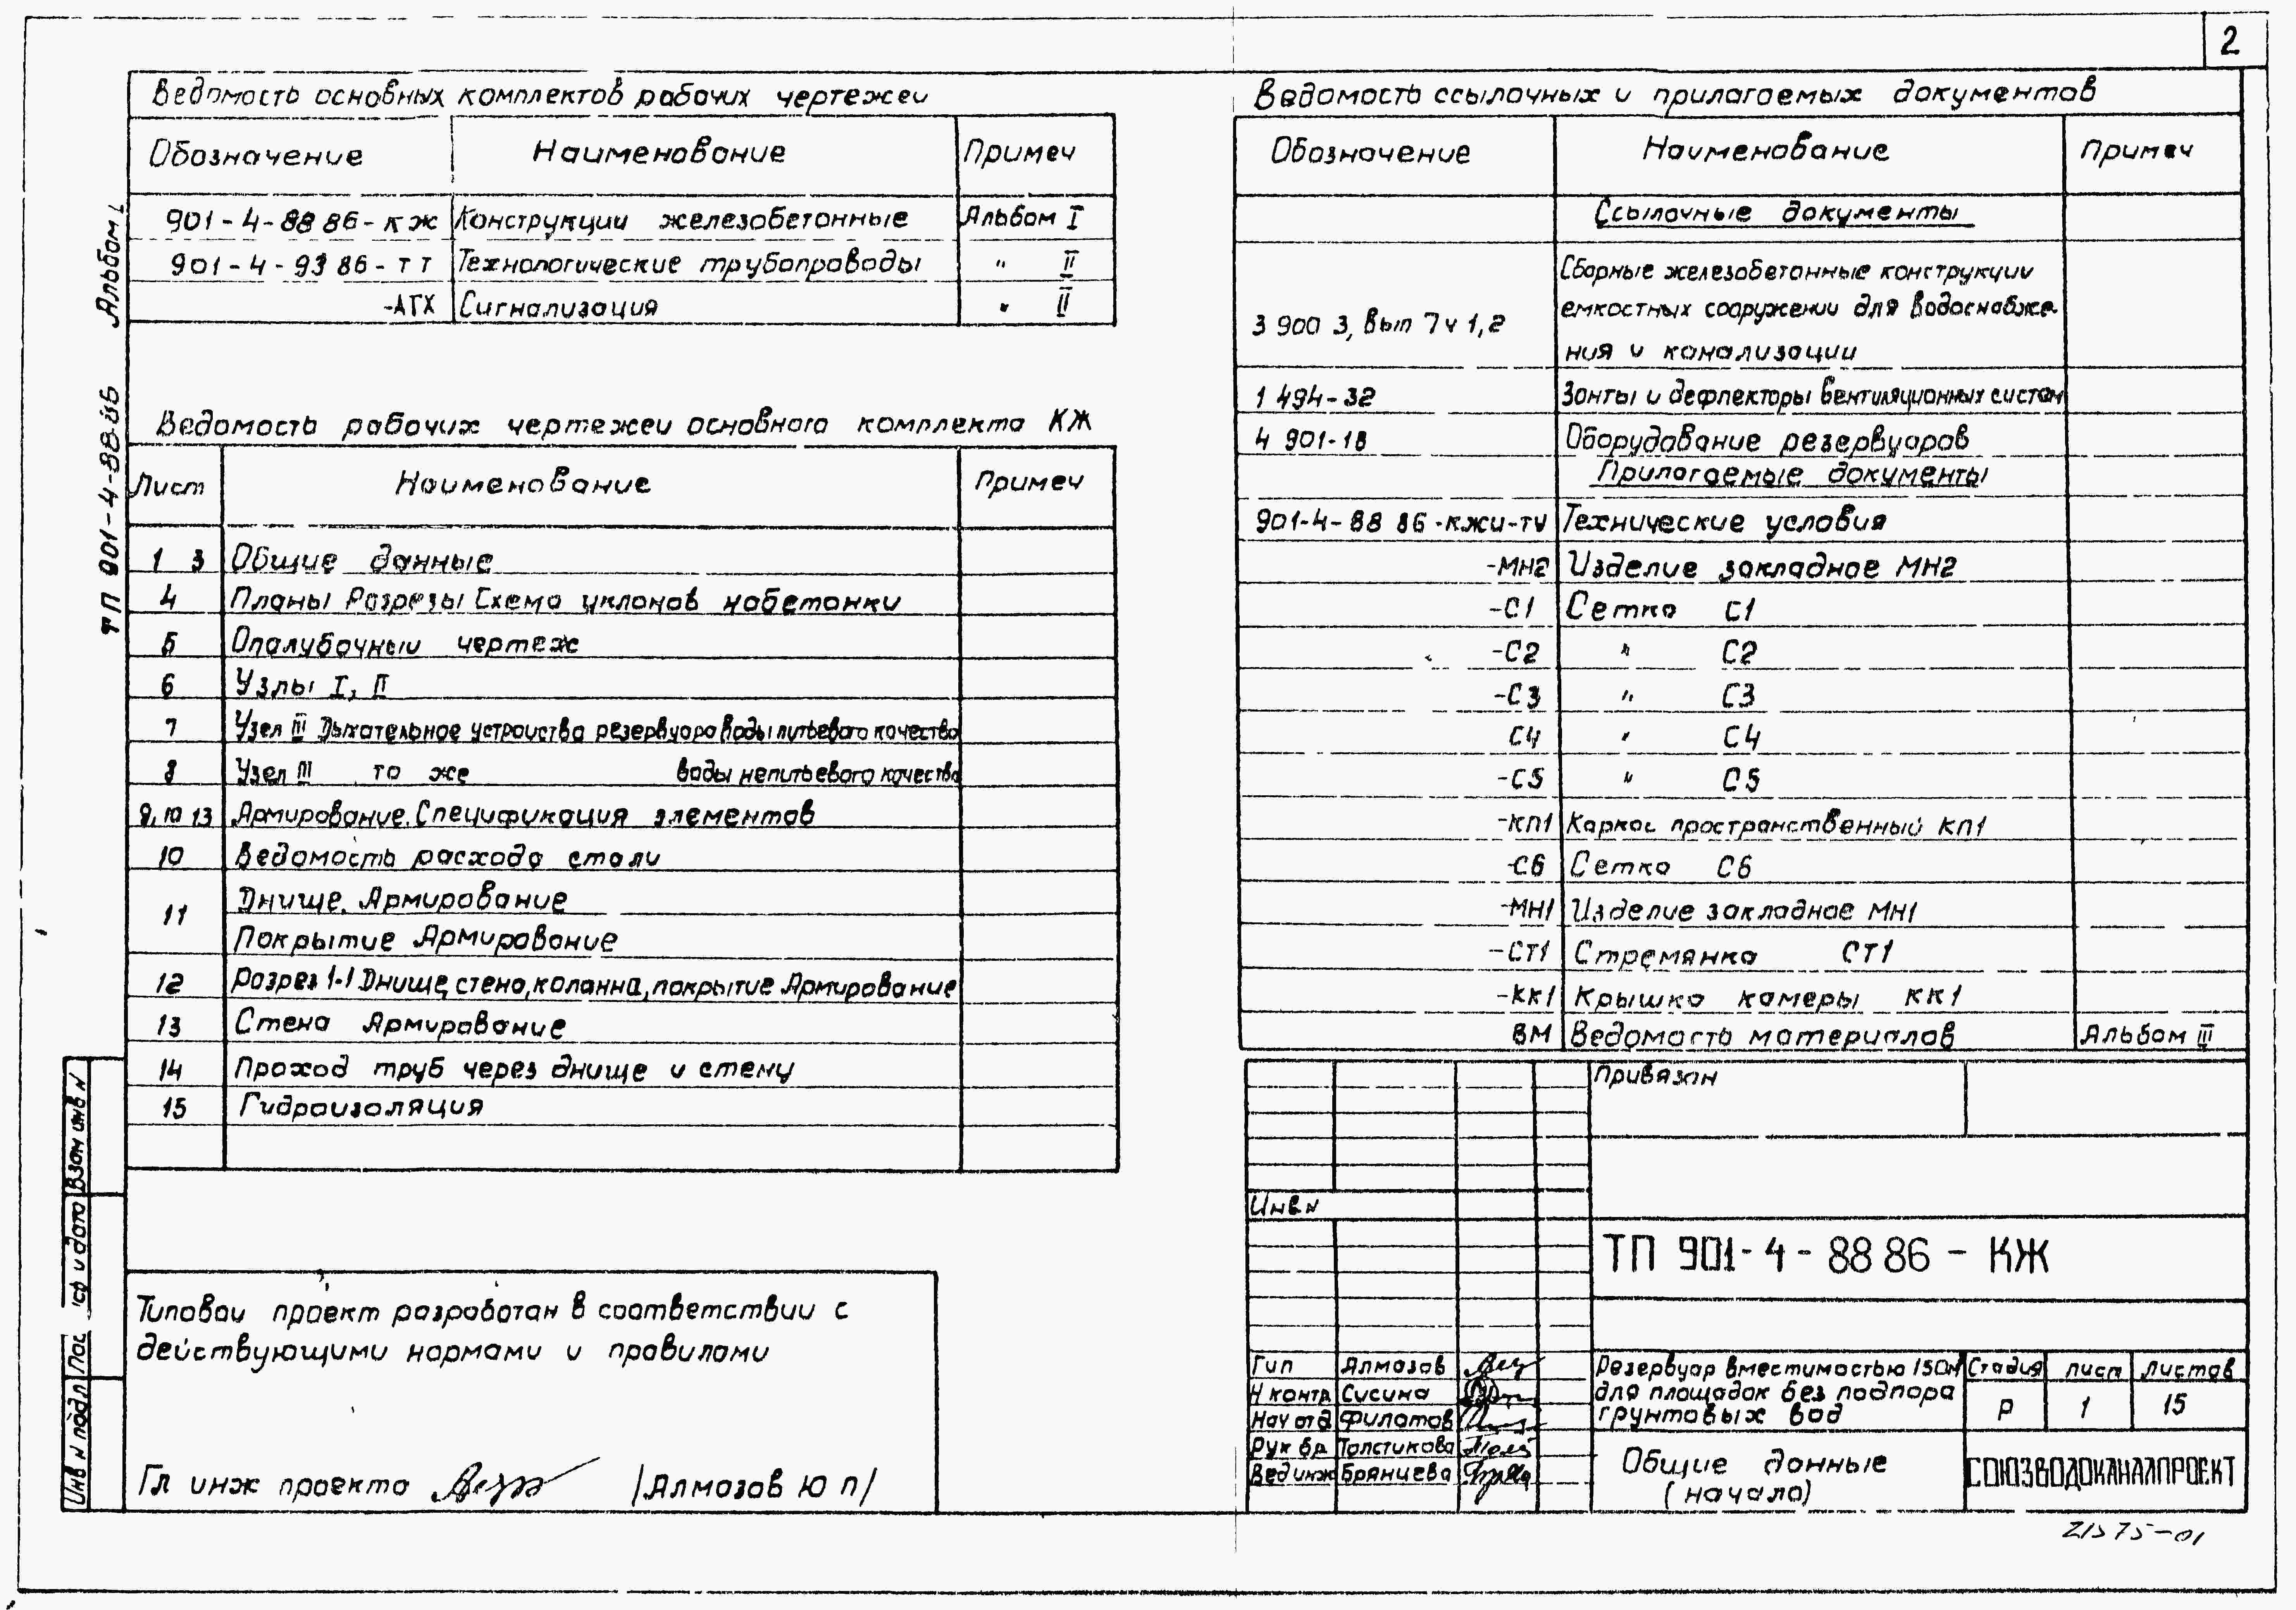 2
Ведомость основных комплектов рабочих чертежеи
Обозначение Наименование Примеч
901-4-88 86-кж Конструкции железобетонные Альбом I
901-4-93 86-тт Технологические трубопроводы " II
-АТХ Сигнализация " II
Ведомость рабочих чертежеи основного комплекта КЖ
Лист Наименование Примеч
1 3 Общие данные
4 Планы Разрезы Схема уклонов набетонки
5 Опалубочныи чертеж
6 Узлы I, II
7 Узел III Дыхательное устроиство резервуара воды питьевого качества
8 Узел III то же воды непитьевого качества
9, 10 13 Армирование. Спецификация элементов
10 Ведомость расхода стали
11 Днище. Армирование
Покрытие Армирование
12 Разрез 1-1 Днище, стена, колонна, покрытие Армирование
13 Стена Армирование
14 Проход труб через днище и стену
15 Гидроизоляция
Типовои проект разработан в соответствии с
действующими нормами и правилами
Гл инж проекта /Алмазов Ю П/
ТП 901-4-88.86 Альбом I
Взам инв N
и дата
Инв N подл
Ведомость ссылочных и прилагаемых документов
Обозначение Наименование Примеч
Ссылочные документы
3 900 3, вып 7 ч 1,2 Сборные железобетонные конструкции
емкостных сооружении для водоснабже-
ния и канализации
1 494-32 Зонты и дефлекторы вентиляционных систем
4 901-18 Оборудование резервуаров
Прилагаемые документы
901-4-88 86-кжи-ту Технические условия
-МН2 Изделие закладное МН2
-С1 Сетка С1
-С2 " С2
-С3 " С3
С4 " С4
-С5 " С5
-КП1 Каркас пространственный КП1
-С6 Сетка С6
-МН1 Изделие закладное МН1
-СТ1 Стремянка СТ1
-КК1 Крышка камеры КК1
ВМ Ведомость материалов Альбом III
Привязан
Инв N
ТП 901-4-88 86-КЖ
Гип Алмазов
Н контр Сусина
Нач отд Филатов
Рук бр Толстикова
Вед инж Брянцева
Резервуар вместимостью 150м
для площадок без подпора
грунтовых вод
Стадия Лист Листов
Р 1 15
Общие данные
(начало)
СОЮЗВОДОКАНАЛПРОЕКТ
21575-01